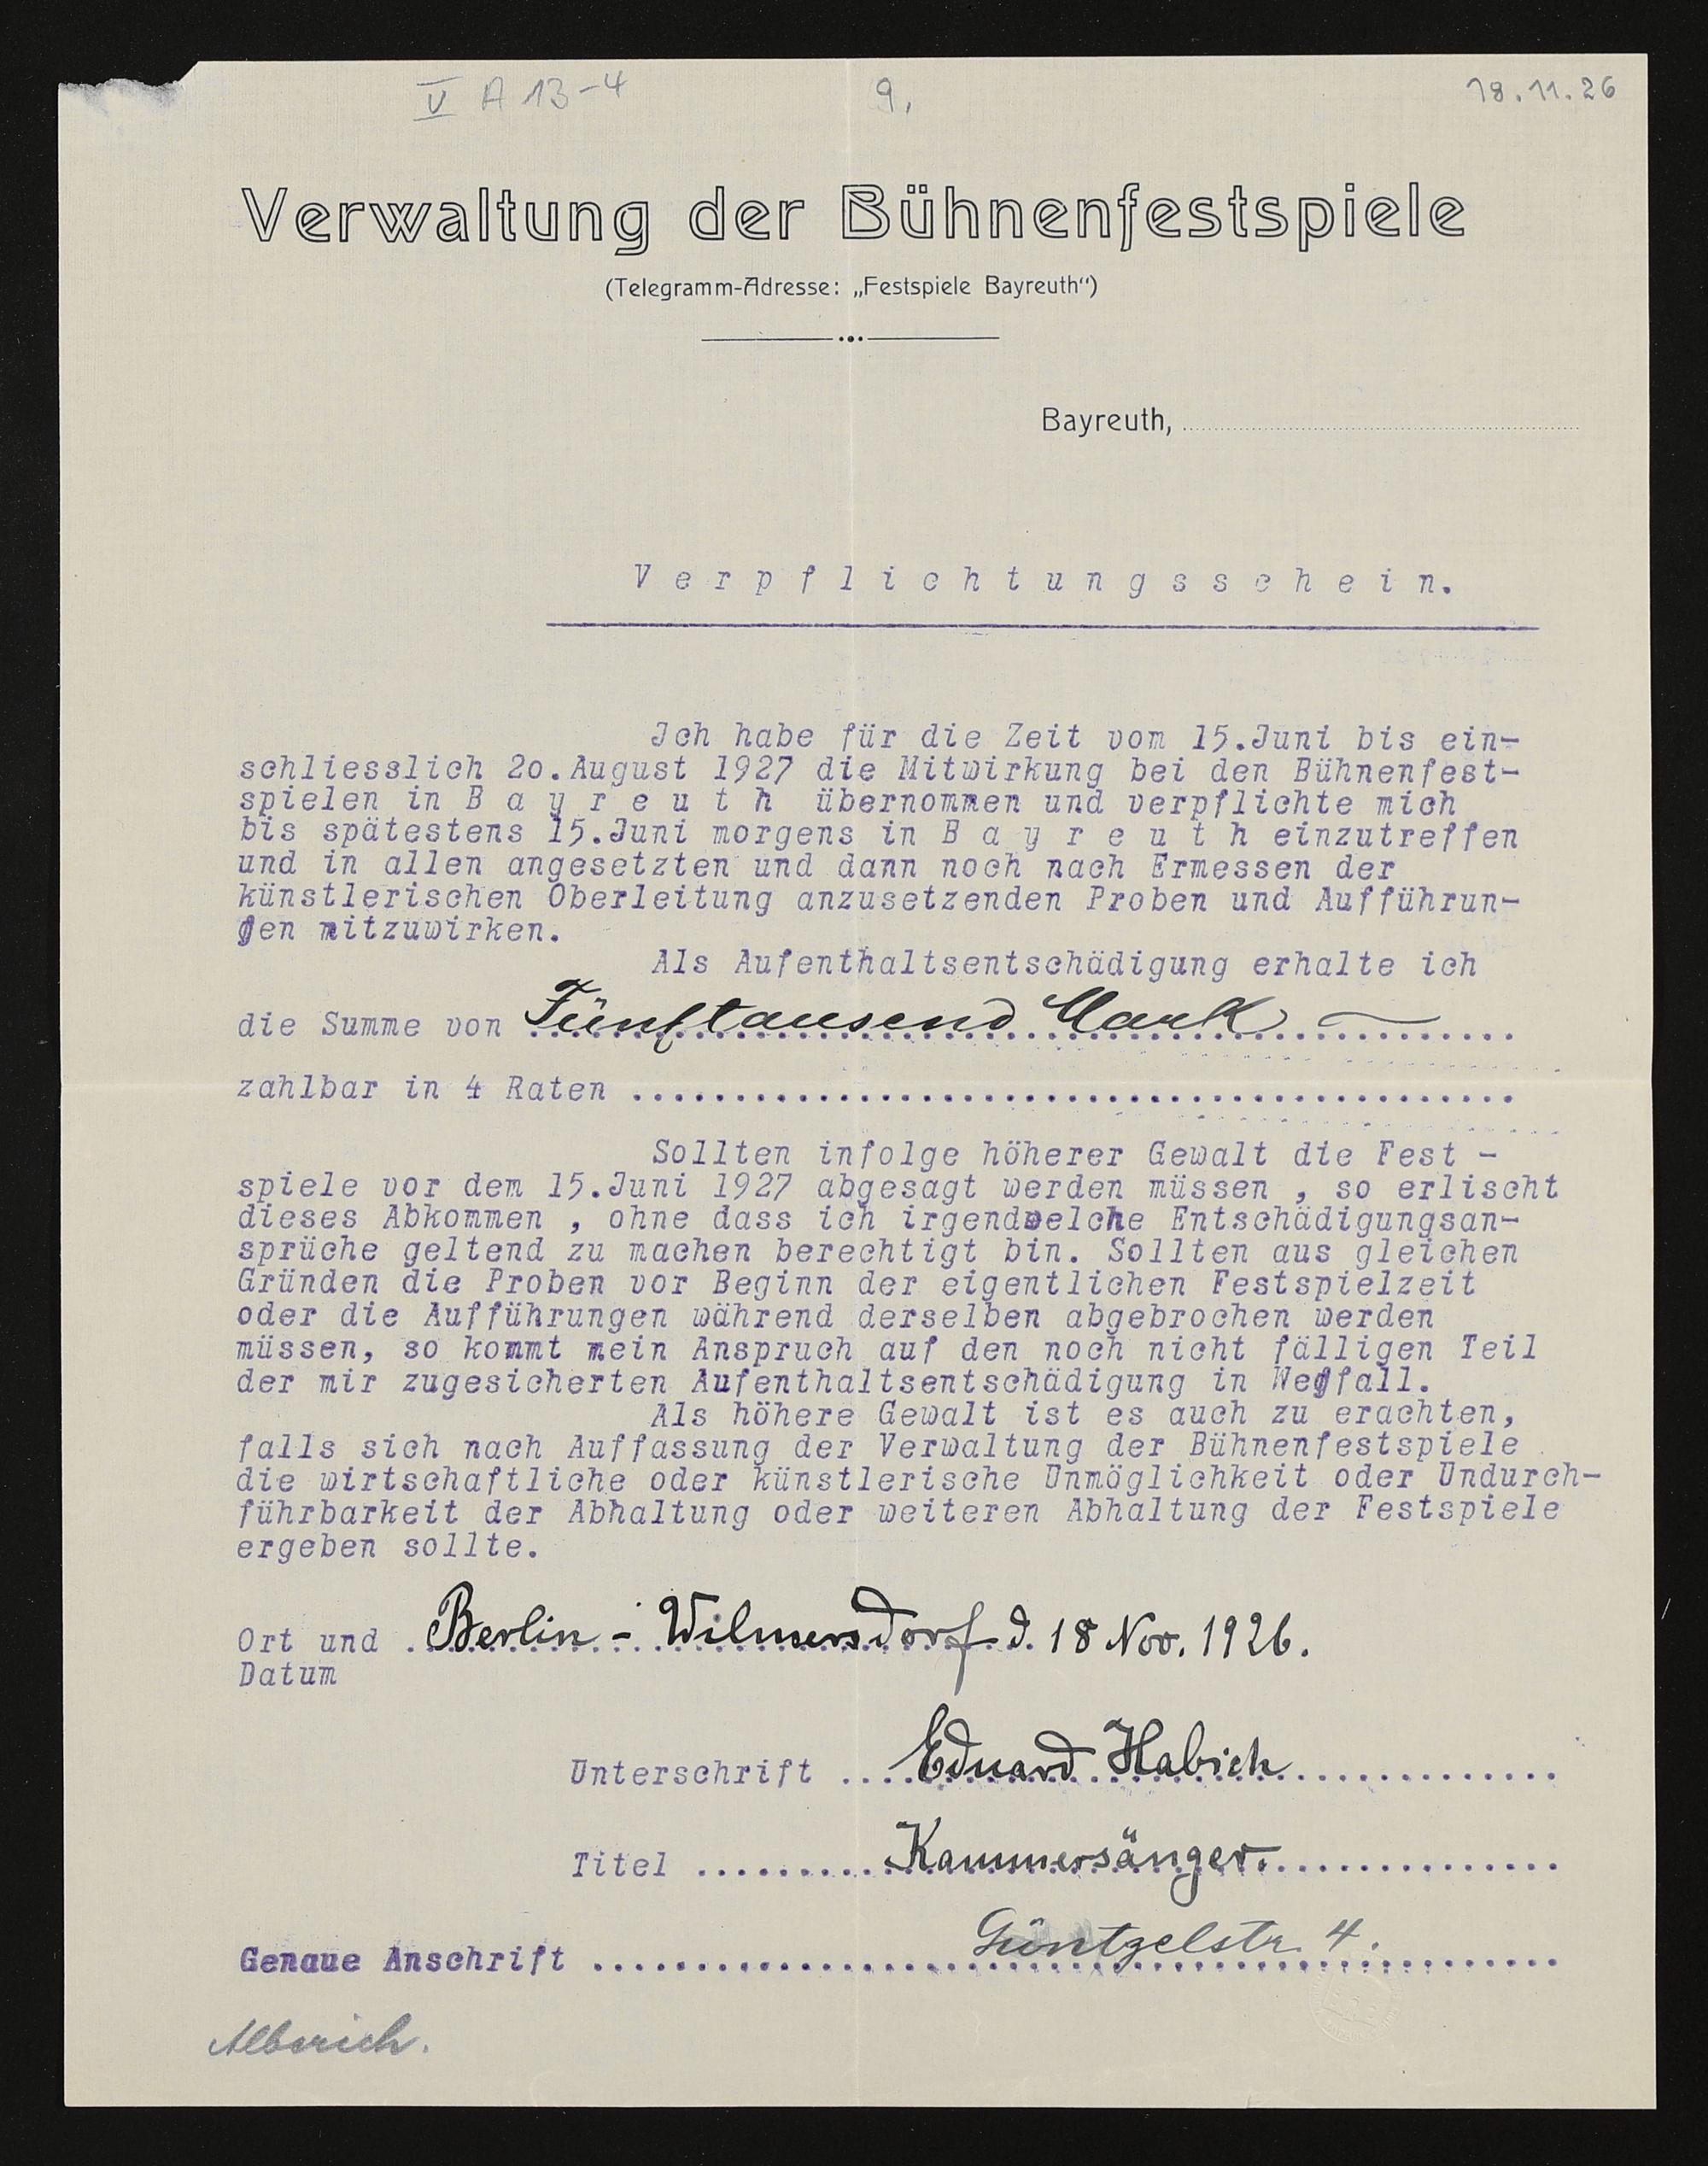 V A 13-4 9, 18.11.26
Verwaltung der Bühnenfestspiele
(Telegramm-Adresse: „Festspiele Bayreuth“)
Bayreuth,
Verpflichtungsschein.
Ich habe für die Zeit vom 15.Juni bis ein-
schliesslich 2o.August 1927 die Mitwirkung bei den Bühnenfest-
spielen in B a y r e u t h übernommen und verpflichte mich
bis spätestens 15.Juni morgens in B a y r e u t h einzutreffen
und in allen angesetzten und dann noch nach Ermessen der
künstlerischen Oberleitung anzusetzenden Proben und Aufführun-
gen mitzuwirken.
Als Aufenthaltsentschädigung erhalte ich
die Summe von Fünftausend Mark
zahlbar in 4 Raten
Sollten infolge höherer Gewalt die Fest -
spiele vor dem 15.Juni 1927 abgesagt werden müssen , so erlischt
dieses Abkommen , ohne dass ich irgendwelche Entschädigungsan-
sprüche geltend zu machen berechtigt bin. Sollten aus gleichen
Gründen die Proben vor Beginn der eigentlichen Festspielzeit
oder die Aufführungen während derselben abgebrochen werden
müssen, so kommt mein Anspruch auf den noch nicht fälligen Teil
der mir zugesicherten Aufenthaltsentschädigung in Wegfall.
Als höhere Gewalt ist es auch zu erachten,
falls sich nach Auffassung der Verwaltung der Bühnenfestspiele
die wirtschaftliche oder künstlerische Unmöglichkeit oder Undurch-
führbarkeit der Abhaltung oder weiteren Abhaltung der Festspiele
ergeben sollte.
Ort und Berlin - Wilmersdorf d. 18 Nov. 1926.
Datum
Unterschrift Eduard Habich
Titel Kammersänger.
Genaue Anschrift Güntzelstr. 4.
Alberich.